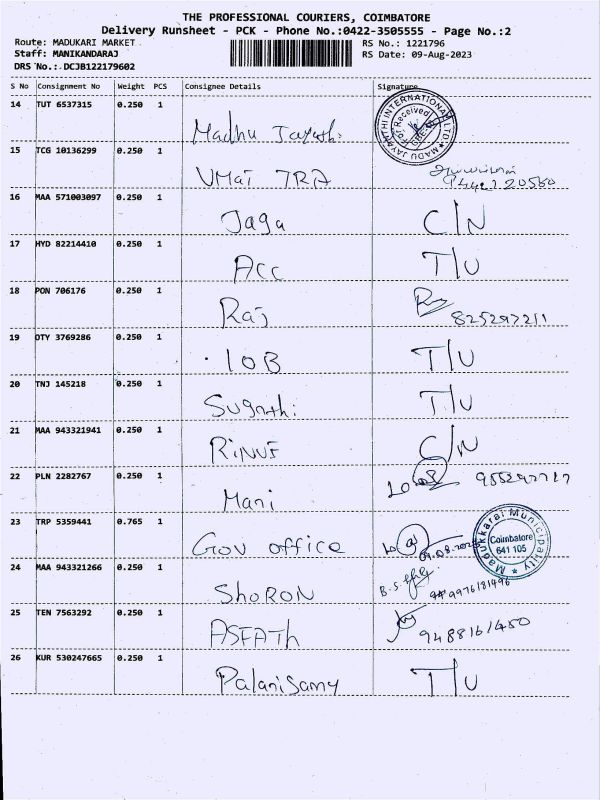 THE PROFESSIONAL COURIERS, COIMBATORE
Delivery Runsheet - PCK - Phone No.:0422-3505555 - Page No.:2
Route: MADUKARI MARKET RS No.: 1221796
Staff: MANIKANDARAJ RS Date: 09-Aug-2023
DRS No.: DCJB122179602
S No Consignment No Weight PCS Consignee Details Signature
14 TUT 6537315 0.250 1 Madhu Jayathi MADU JAYANTHI INTERNATIONAL LTD. Received
15 TCG 10136299 0.250 1 UMai TRA
16 MAA 571003097 0.250 1 Jaga C/N
17 HYD 82214410 0.250 1 Acc T/U
18 PON 706176 0.250 1 Raj 825297211
19 OTY 3769286 0.250 1 IOB T/U
20 TNJ 145218 0.250 1 Sugathi T/U
21 MAA 943321941 0.250 1 C/N
22 PLN 2282767 0.250 1 Mani
23 TRP 5359441 0.765 1 Gov office Madukkarai Municipality Coimbatore 641 105
24 MAA 943321266 0.250 1 ShoRON 9976181496
25 TEN 7563292 0.250 1 ASFATh 9488161450
26 KUR 530247665 0.250 1 Palanisamy T/U